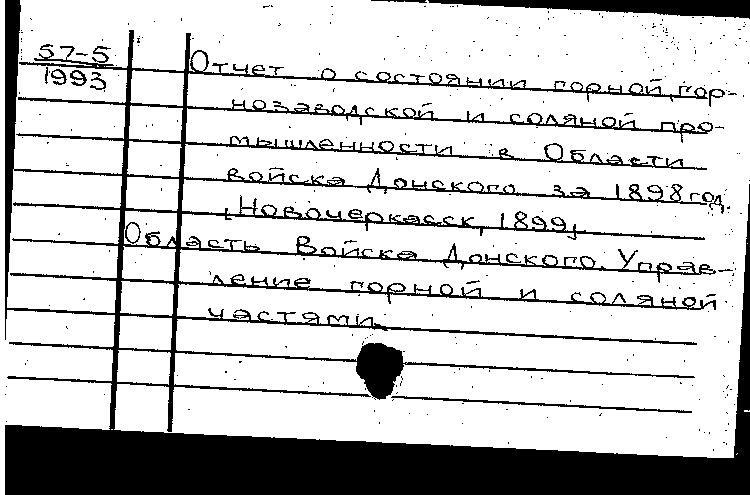 57-5
1993
Отчет о состоянии горной, гор-
нозаводской и соляной про-
мышленности в Области
войска Донского за 1898 год.
[Новочеркасск, 1899]
Область Войска Донского. Управ-
ление горной и соляной
частями.